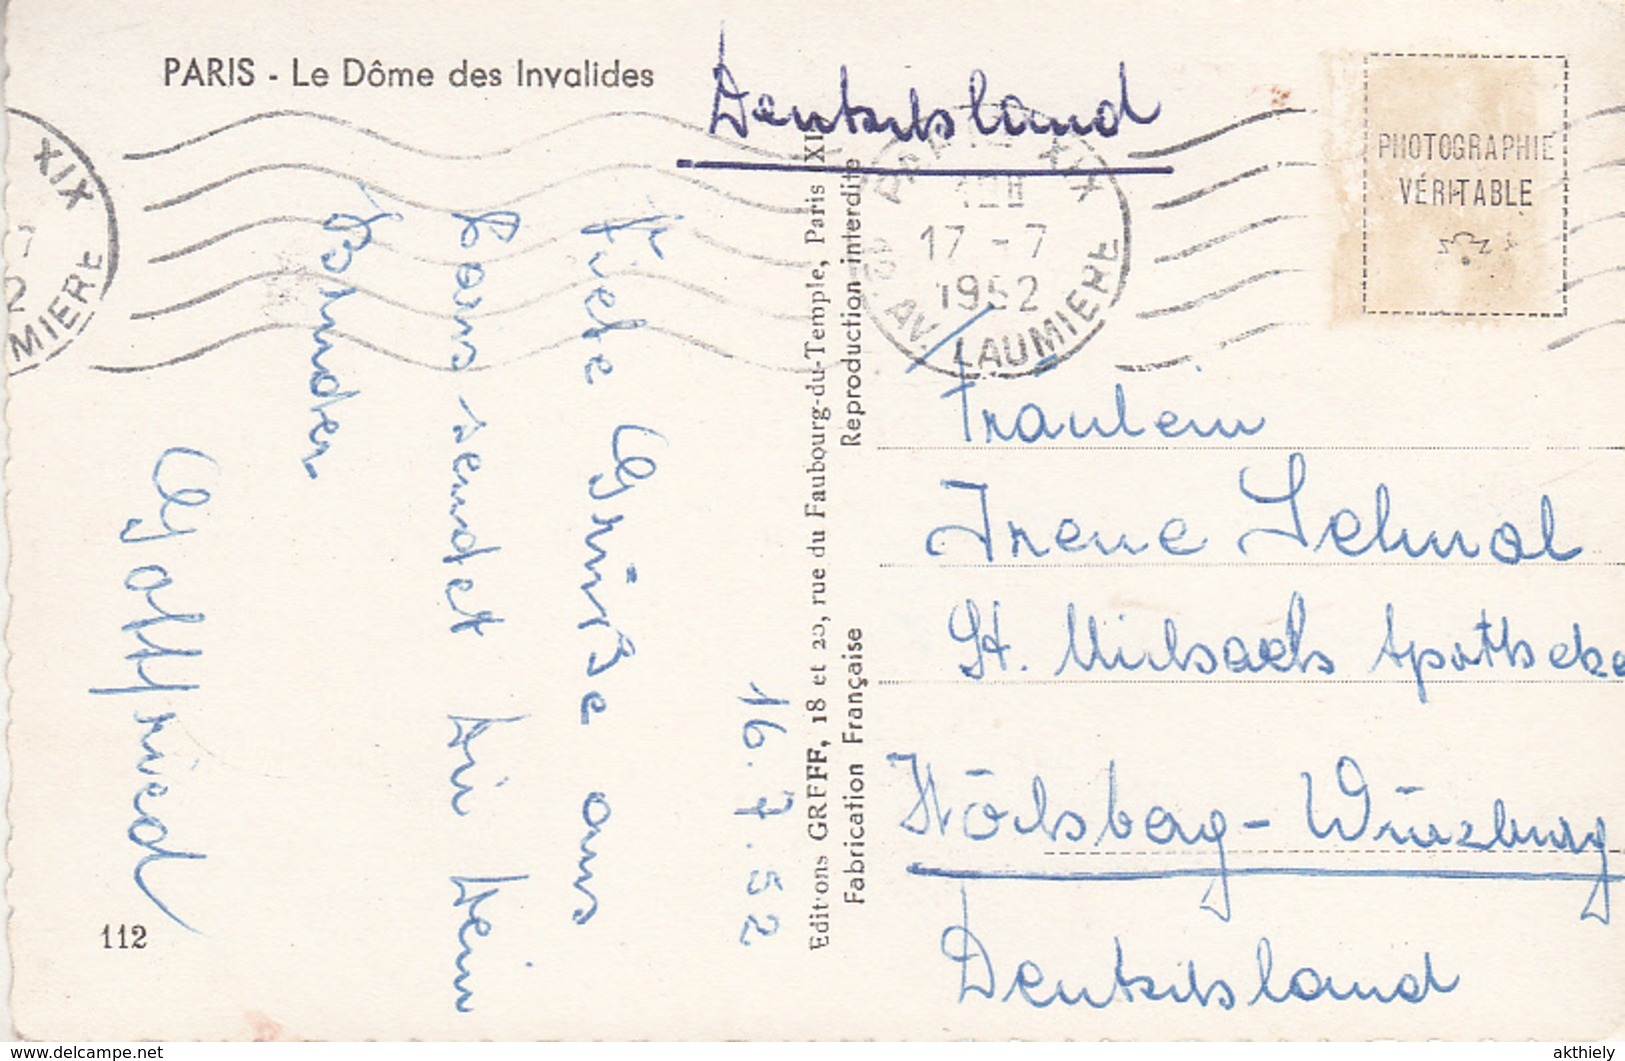 PARIS - Le Dôme des Invalides
Deutschland
PARIS XIX
17 - 7
1952
AV. LAUMIERE
XIX
MIERE
PHOTOGRAPHIE
VÉRITABLE
16.7.52
Viele Grüße aus
Paris sendet Dir Dein
Bruder
Gottfried
Editions GREFF, 18 et 20, rue du Faubourg-du-Temple, Paris XI
Fabrication Française
Reproduction interdite
Fräulein
Irene
St. Michaels Apotheke
Höchberg-Würzburg
Deutschland
112
www.delcampe.net
akthiely